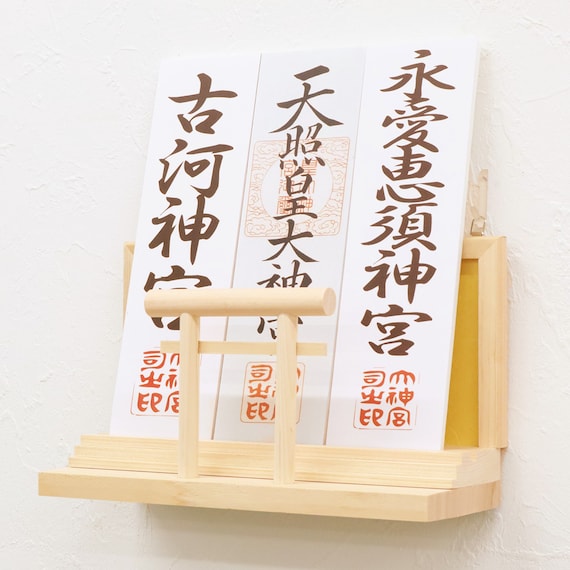 永愛恵須神宮
天照皇大神宮
古河神宮
大神宮
司之印
大神宮
司之印